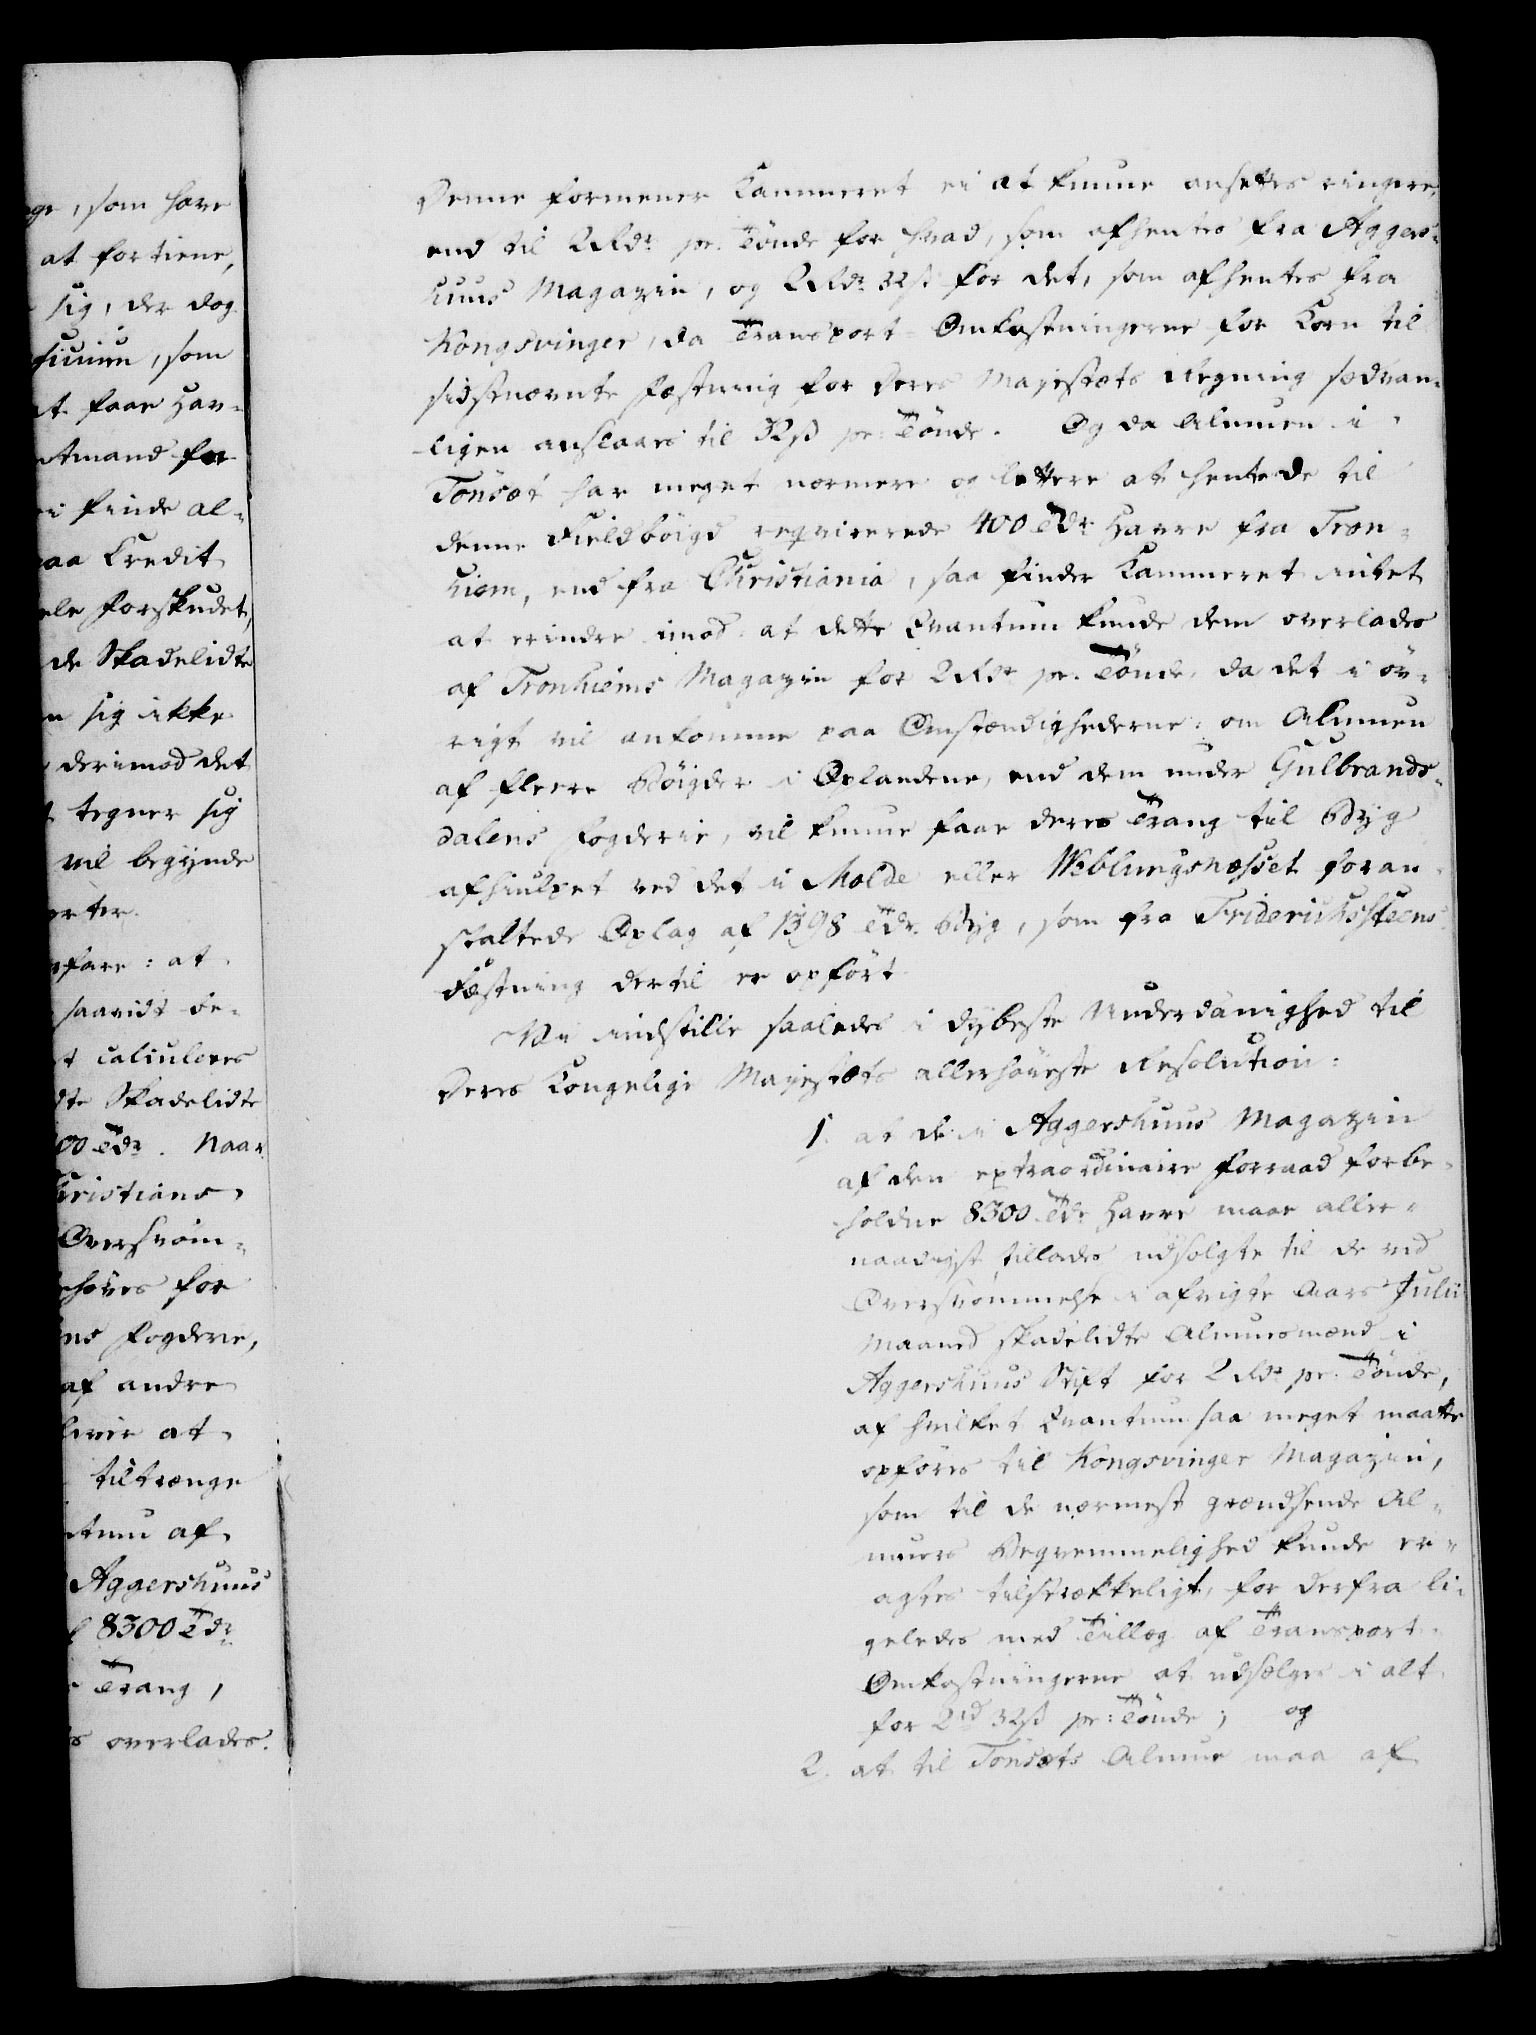 ge, som have
at fortiene,
sig, der dog
som
at faae Hav-
Amand for
i finde al-
paa Credit
ele Forskudet,
de Skadelidte
n sig ikke
derimod det
tegner sig
vil begynde
erter.
fare: at
saavidt be-
t caliuleres
dte Skadelidte
00 Tdr. Naar
hristians
Oversvöm-
ehöves for
ns Fogderie,
af andre
liver at
tiltrænge
ntum af
Aggershuus
l 8300 Tdr
Trang,
s overlades.
Denne formener Kammeret ei at kunne ansættes ringere,
end til 2 Rdr pr. Tönde for hvad, som afhentes fra Aggers-
huus Magazin, og 2 Rdr 32 ß for det, som afhentes fra
Kongsvinger, da Transport-Omkostningerne for Korn til
sidstnævnte Fæstning for Deres Majestæts Regning sædvan-
ligen anslaaes til 32 ß pr: Tönde. Og da Almuen i
Tönset har meget nærmere og lettere at hente de til
denne Fieldböigd reqvirerede 400 Tdr Havre fra Tron-
hiem, end fra Christiania, saa finder Kammeret intet
at erindre imod at dette Qvantum kunde dem overlades
af Tronhiems Magazin for 2 Rdr pr. Tönde, da det i öv-
rigt vil ankomme paa Omstændighederne: om Almuen
af flere Böigder i Oplandene, end dem under Gulbrands-
dalens Fogderie, vil kunne faae deres Trang til Byg
afhiulpet ved det i Molde eller Weblungsnæsset foran-
staltede Oplag af 1398 Tdr. Byg, som fra Friderichssteens
Fæstning dertil er opfört.
Vi indstille saaledes i dybeste Underdanighed til
Deres Kongelige Majestæts allerhöieste Resolution:
1. at de i Aggershuus Magazin
af den extraordinaire Forraad forbe-
holdne 8300 Tdr Havre maae aller-
naadigst tillades udsolgte til de ved
Oversvömmelse i afvigte Aars Julii
Maaned skadelidte Almuesmænd i
Aggershuus Stift for 2 Rdr pr. Tönde,
af hvilket Qvantum saa meget maatte
opföres til Kongsvinger Magazin,
som til de nærmest grændsende Al-
muers Beqvemmelighed kunde er-
agtes tilstrækkeligt, for derfra li-
geledes med Tillæg af Transport-
Omkostningerne at udsælges i alt
for 2 rd 32 ß pr: Tönde; og
2. at til Tönsæts Almue maa af